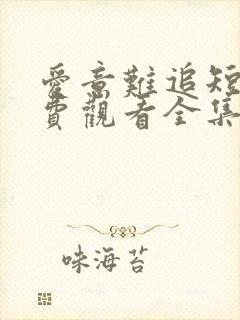 愛意難追短
費觀看全集
味海苔